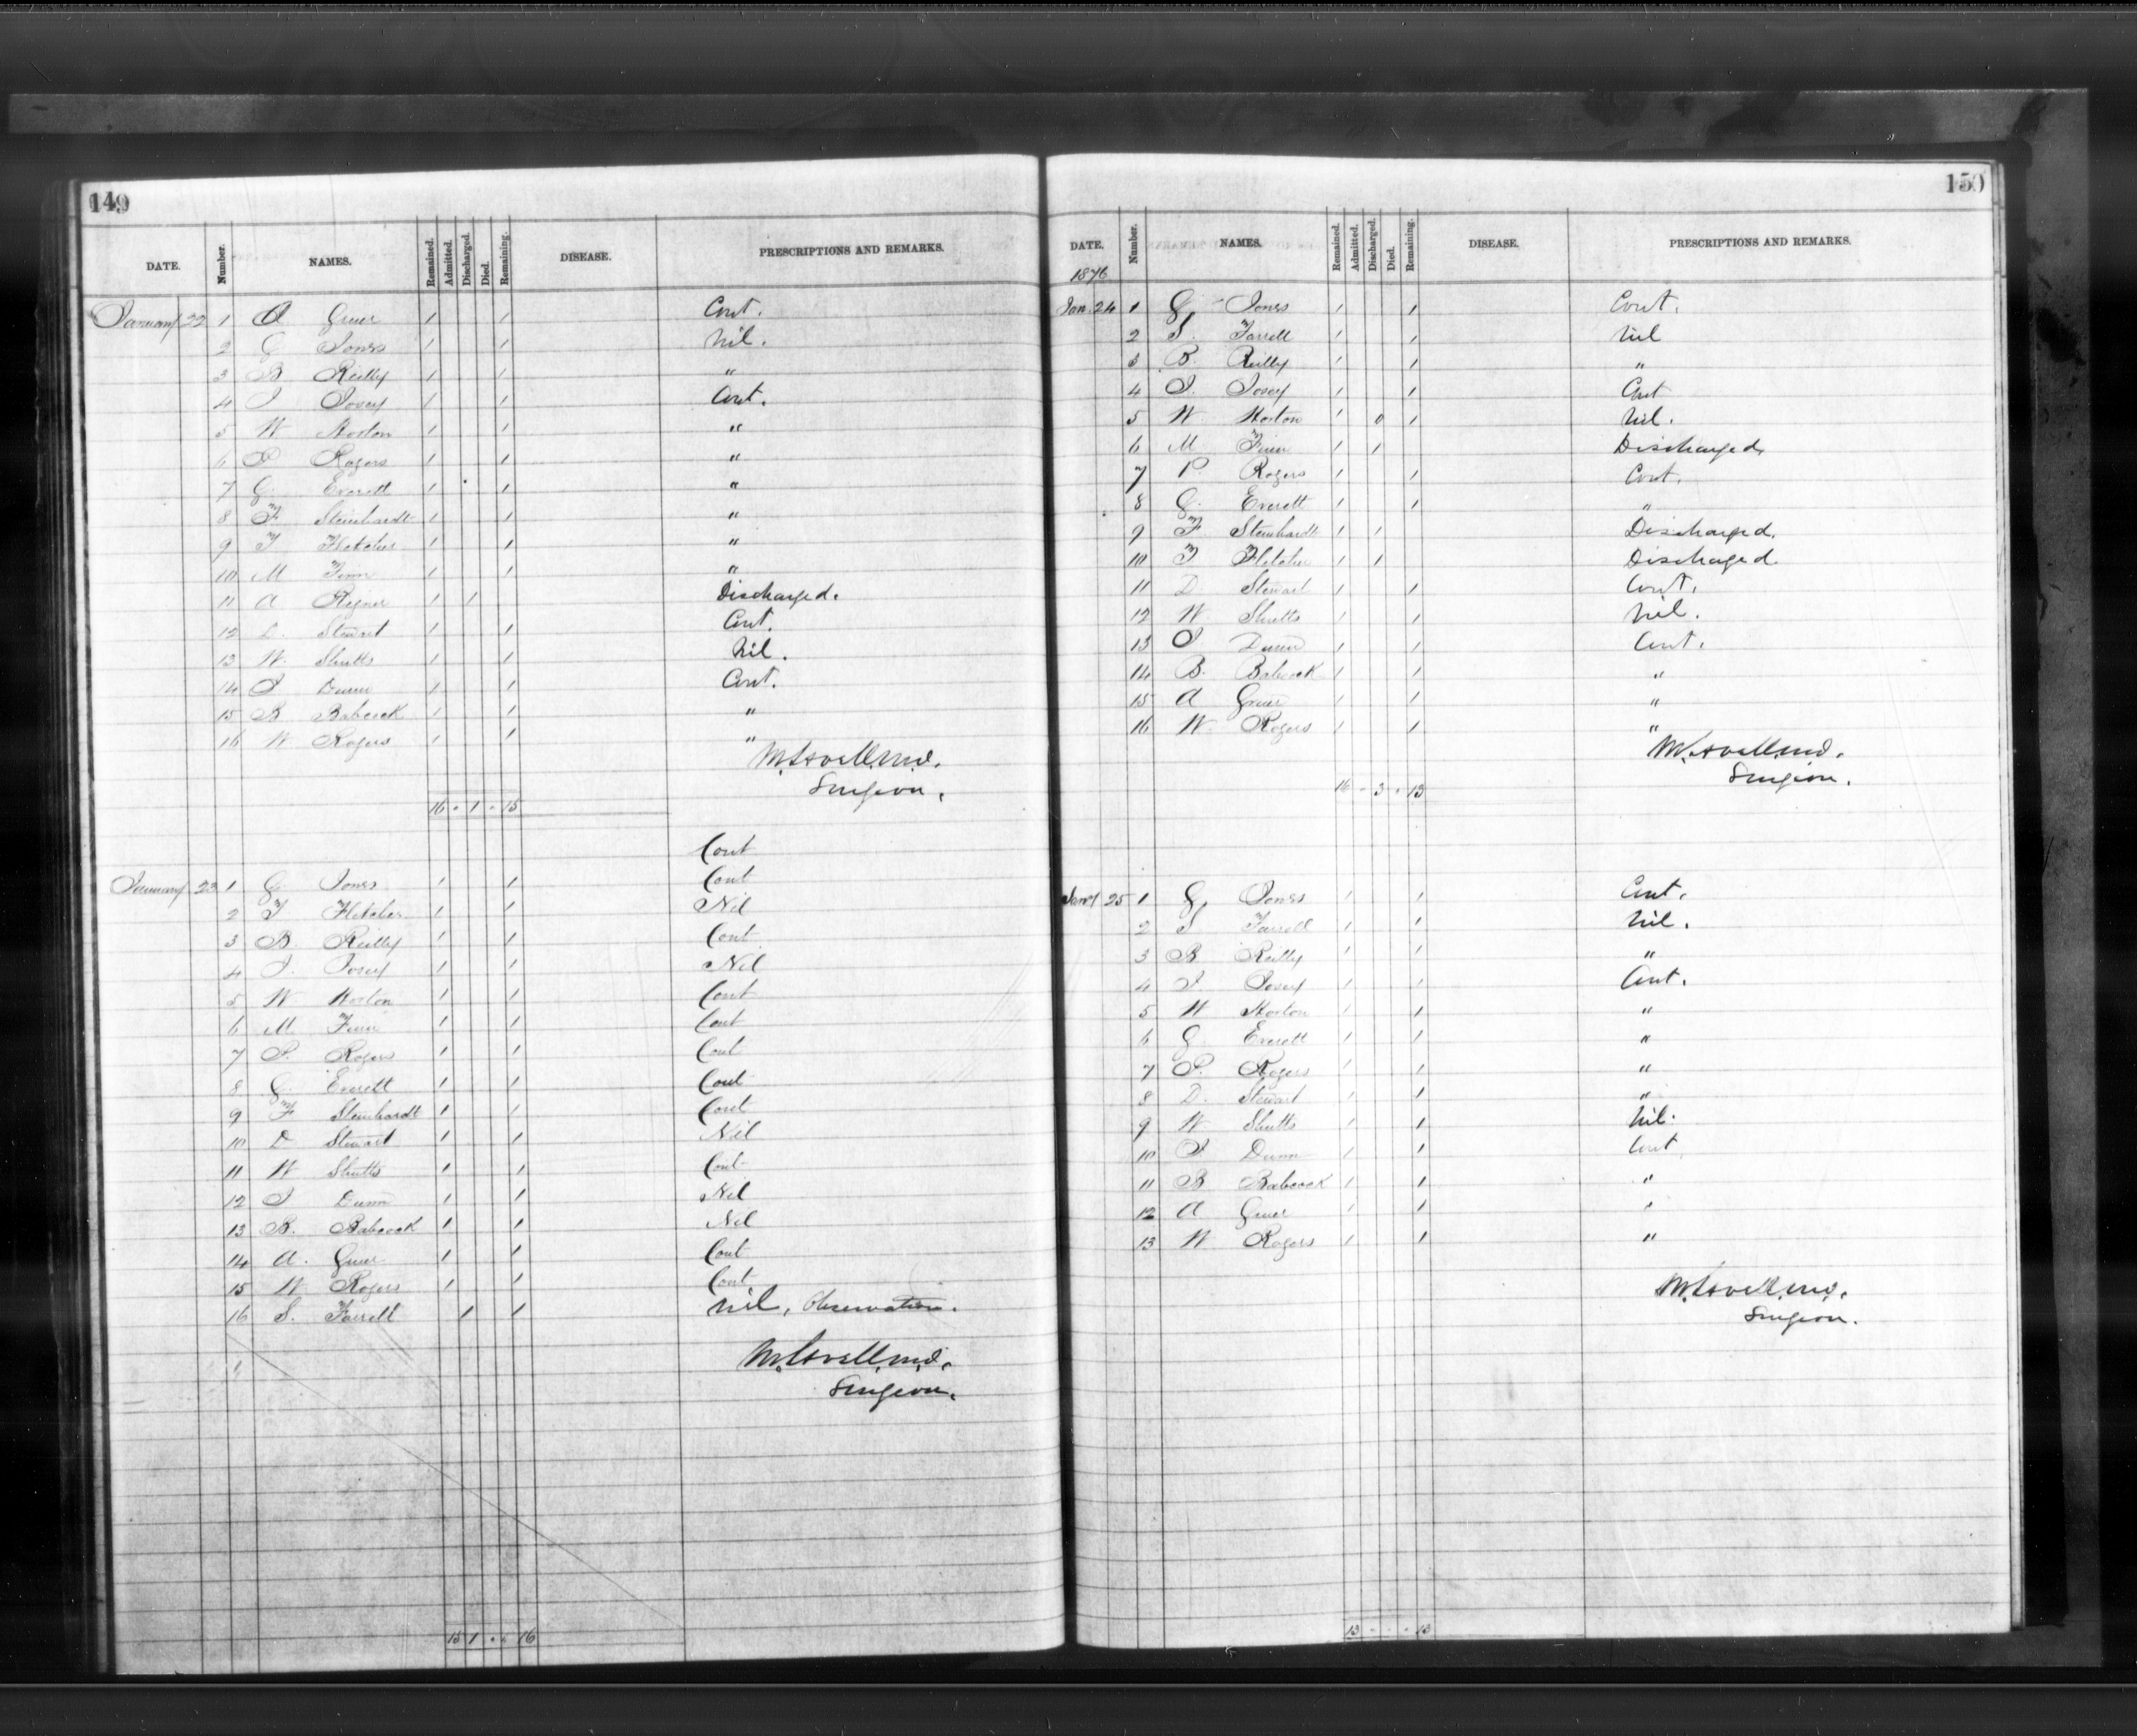 149
DATE. Number. NAMES. Remained. Admitted. Discharged. Died. Remaining. DISEASE. PRESCRIPTIONS AND REMARKS.
January 22 1 A Greer 1 1 Cont.
2 G Jones 1 1 Nil.
3 B Reilly 1 1 "
4 J 1 1 Cont.
5 W Horton 1 1 "
6 P Rogers 1 1 "
7 G. Everett 1 1 "
8 F. Steinhardt 1 1 "
9 T Fletcher 1 1 "
10 M Finn 1 1 "
11 A 1 1 Discharged.
12 D. Stewart 1 1 Cont.
13 W. Shutts 1 1 Nil.
14 J Dunn 1 1 Cont.
15 B Babcock 1 1 "
16 W Rogers 1 1 "
M. Lavell, M.D.
Surgeon.
16 - 1 - 15
Cont
January 23 1 G. Jones 1 1 Cont
2 T Fletcher 1 1 Nil
3 B. Reilly 1 1 Cont
4 J. 1 1 Nil
5 W Horton 1 1 Cont
6 M Finn 1 1 Cont
7 P. Rogers 1 1 Cont
8 G. Everett 1 1 Cont
9 F Steinhardt 1 1 Cont
10 D Stewart 1 1 Nil
11 W Shutts 1 1 Cont
12 J Dunn 1 1 Nil
13 B. Babcock 1 1 Nil
14 A. Greer 1 1 Cont
15 W Rogers 1 1 Cont
16 S. Farrell 1 1 Nil, Observation.
M. Lavell, M.D.
Surgeon.
15 1 - - 16
150
DATE. Number. NAMES. Remained. Admitted. Discharged. Died. Remaining. DISEASE. PRESCRIPTIONS AND REMARKS.
1876
Jan. 24 1 G Jones 1 1 Cont.
2 S. Farrell 1 1 Nil
3 B. Reilly 1 1 "
4 J. 1 1 Cont
5 W. Horton 1 0 1 Nil.
6 M. Finn 1 1 Discharged
7 P. Rogers 1 1 Cont.
8 G. Everett 1 1 "
9 F. Steinhardt 1 1 Discharged.
10 T Fletcher 1 1 Discharged
11 D. Stewart 1 1 Cont.
12 W. Shutts 1 1 Nil.
13 J Dunn 1 1 Cont.
14 B. Babcock 1 1 "
15 A Greer 1 1 "
16 W. Rogers 1 1 "
M. Lavell, M.D.
Surgeon.
16 - 3 - 13
Jany 25 1 G. Jones 1 1 Cont.
2 S Farrell 1 1 Nil.
3 B Reilly 1 1 "
4 J. 1 1 Cont.
5 W Horton 1 1 "
6 G. Everett 1 1 "
7 P. Rogers 1 1 "
8 D. Stewart 1 1 "
9 W Shutts 1 1 Nil.
10 J. Dunn 1 1 Cont
11 B Babcock 1 1 "
12 A Greer 1 1 "
13 W Rogers 1 1 "
M. Lavell, M.D.
Surgeon.
13 - - - 13